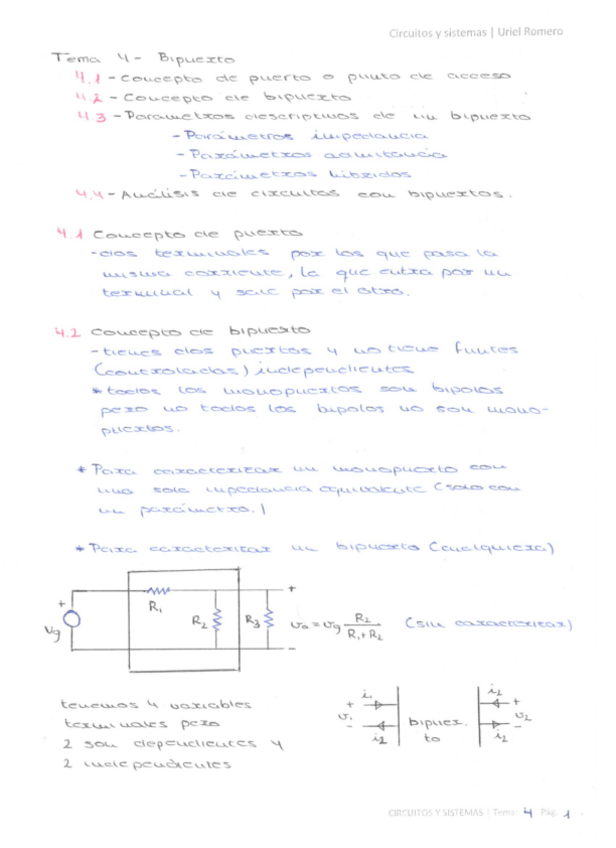 Circuitos y sistemas | Uriel Romero
Tema 4- Bipuerto
4.1 - Concepto de puerto o punto de acceso
4.2 - Concepto de bipuerto
4.3 - Parámetros descriptivos de un bipuerto
- Parámetros impedancia
- Parámetros admitancia
- Parámetros híbridos
4.4 - Análisis de circuitos con bipuertos.
4.1 Concepto de puerto
- dos terminales por los que pasa la
misma corriente, la que entra por un
terminal y sale por el otro.
4.2 Concepto de bipuerto
- tienes dos puertos y no tiene fuentes
(controladas) independientes
* todos los monopuertos son bipolos
pero no todos los bipolos no son mono-
puertos.
* Para caracterizar un monopuerto con
una sola impedancia equivalente (solo con
un parámetro.)
* Para caracterizar un bipuerto (cualquiera)
+ Vg R1 R2 R3 + - Vo = Vg R2 / R1 + R2 (sin caracterizar)
tenemos 4 variables
terminales pero
2 son dependientes y
2 independientes
i1 + V1 - i2 bipuer. to i2 + V2 - i2
CIRCUITOS Y SISTEMAS | Tema: 4 Pág. 1